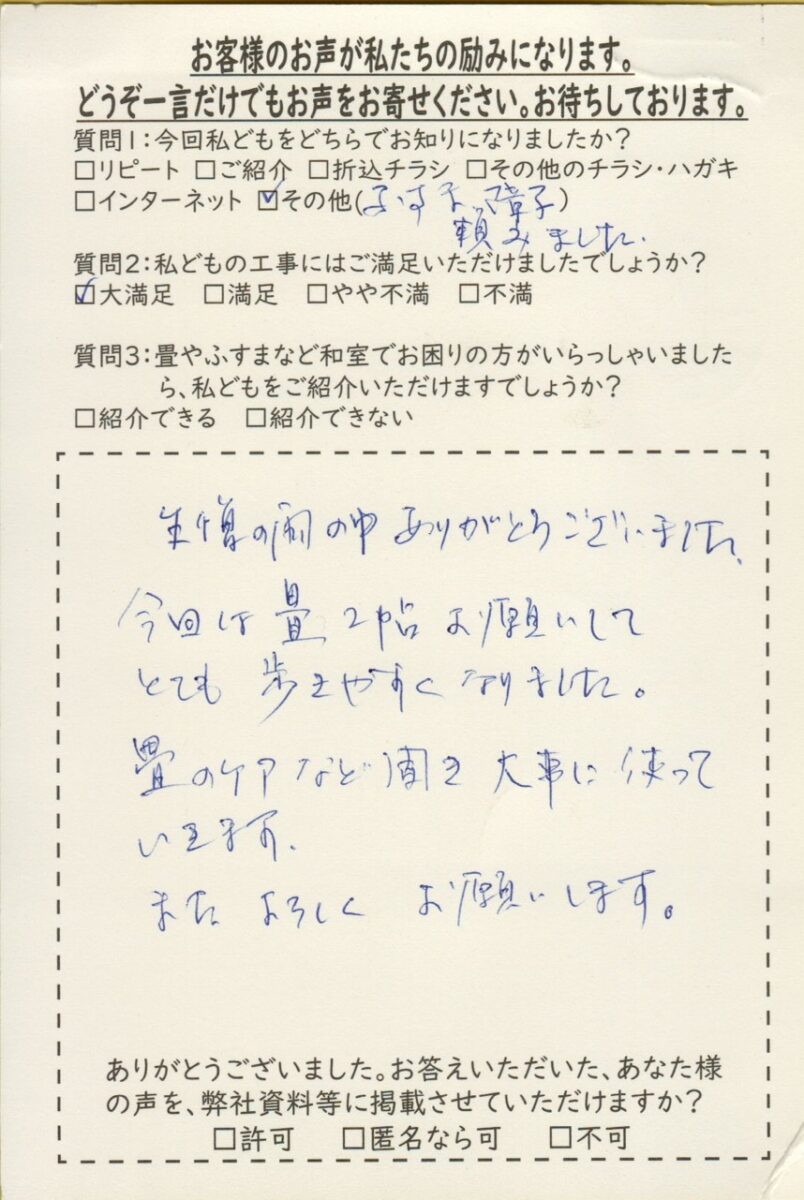 お客様のお声が私たちの励みになります。
どうぞ一言だけでもお声をお寄せください。お待ちしております。
質問1:今回私どもをどちらでお知りになりましたか?
□リピート □ご紹介 □折込チラシ □その他のチラシ・ハガキ
□インターネット ☑その他(ふすま、障子)
頼みました。
質問2:私どもの工事にはご満足いただけましたでしょうか?
☑大満足 □満足 □やや不満 □不満
質問3:畳やふすまなど和室でお困りの方がいらっしゃいました
ら、私どもをご紹介いただけますでしょうか?
□紹介できる □紹介できない
生憎の雨の中ありがとうございました、
今回は畳2帖お願いして
とても歩きやすくなりました。
畳のケアなど聞き大事に使って
いきます、
またよろしくお願いします。
ありがとうございました。お答えいただいた、あなた様
の声を、弊社資料等に掲載させていただけますか?
□許可 □匿名なら可 □不可